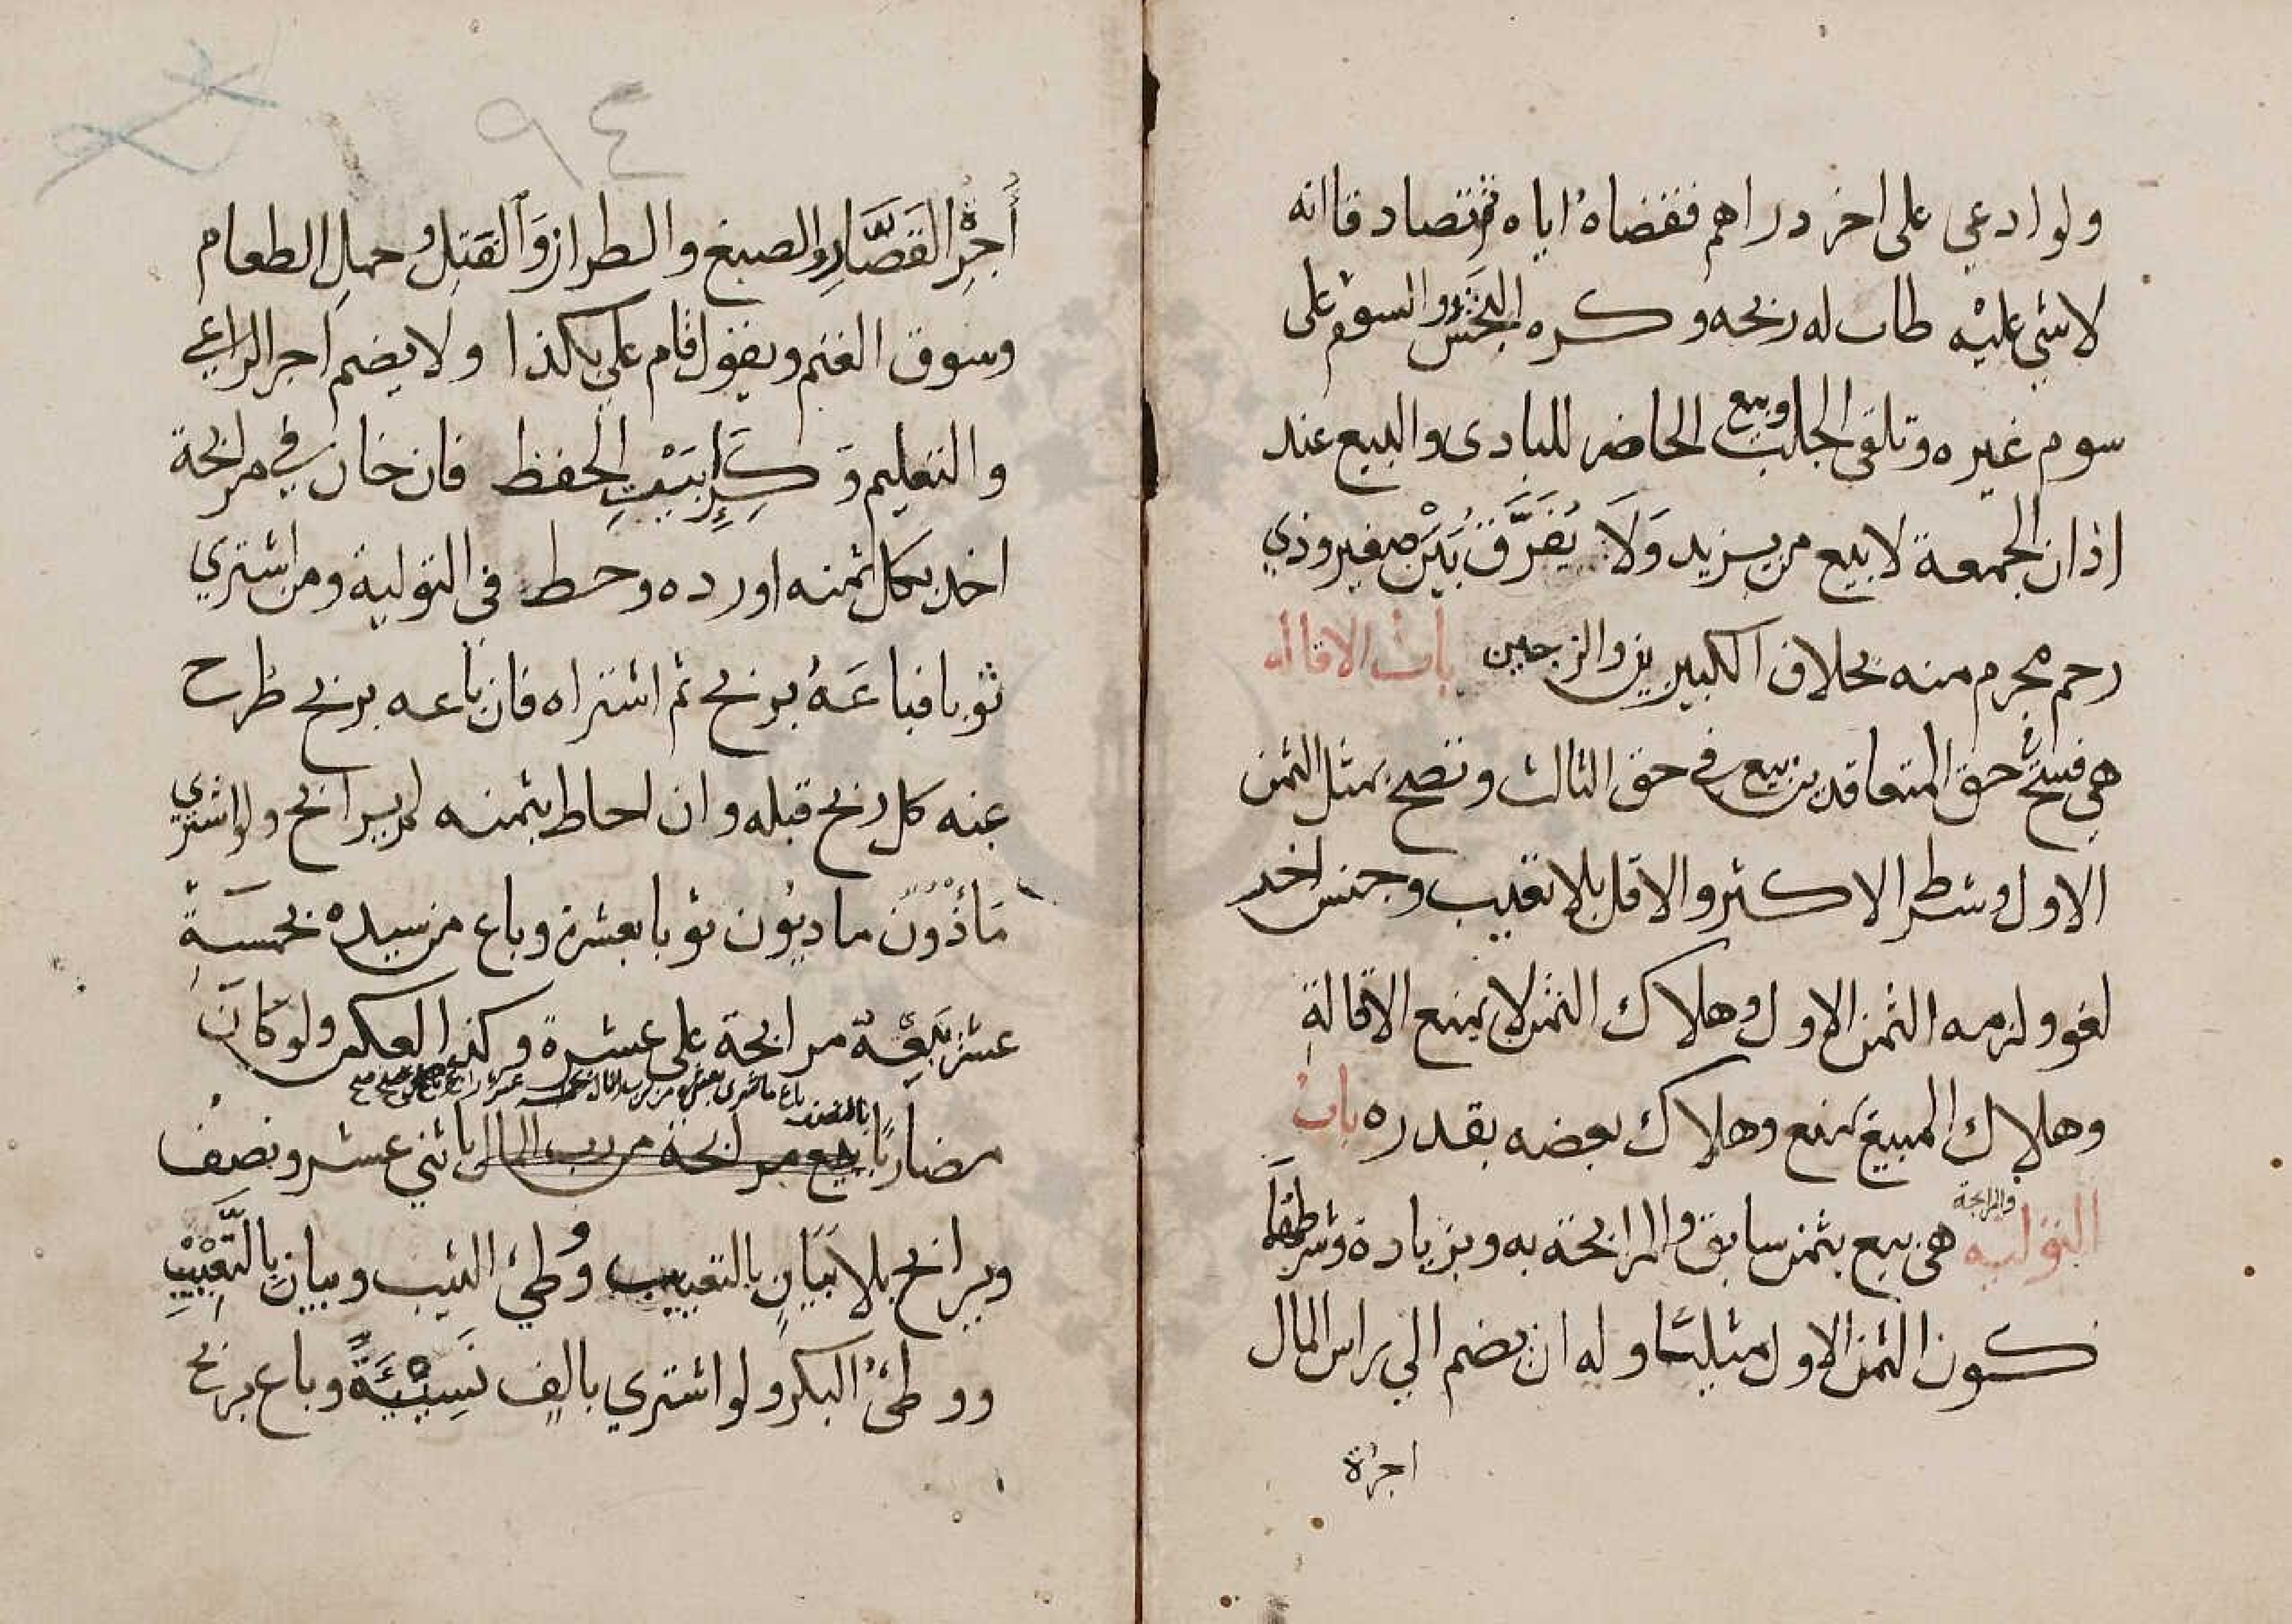 ولو ادعي على اخر دراهم فقضاه اياه ثم تصادقا انه
لا شي عليه طاب له ربحه وكره النجش والسوم على
سوم غيره وتلقى الجلب وبيع الحاضر للبادى والبيع عند
اذان الجمعة لا بيع من يزيد وَلَا يُفَرَّقُ بَيْنَ صغير وذي
رحم محرم منه بخلاف الكبيرين والزوجين باب الاقاله
هي فسخ في حق المتعاقدين بيع في حق الثالث وتصح بمثل الثمن
الاول وشرط الاكثر والاقل بلا تعيب وجنس اخر
لغو ولزمه الثمن الاول وهلاك الثمن لا يمنع الاقالة
وهلاك المبيع يمنع وهلاك بعضه بقدره باب
التوليه والمرابحة هي بيع بثمن سابق والمرابحة به وبزيادة وشرطهما
كون الثمن الاول مثليا وله ان يضم الي راس المال
اجرة
٩٤
أُجرة القَصَّارِ والصبغ والطراز وَالفَتِل وحمل الطعام
وسوق الغنم ويقول قام علي بكذا ولا يضم اجر الراعي
والتعليم وَكِرَاء بَيْتِ الحفظ فان خان في مرابحة
اخد بكل ثمنه او رده وحط في التولية ومن اشتري
ثوبا فباعَهُ بربح ثم اشتراه فان باعه بربح طرح
عنه كل ربح قبله وان احاط بثمنه لم يرابح ولو اشتري
مَأذُون مديُون ثوبا بعشرة وباع من سيده بخمسة
عشر يَبِيعُهُ مرابحة على عشرة وكذا العكس ولو كان
باع ما شرى بعشرة من رب المال بخمسة عشر
مضاربًا بالنصف بيع مرابحة من رب المال باثني عشر ونصف
ويرابح بلا بَيَانٍ بالتعييب ووطئ الثيب وبيان بالتَّعْيِيْبِ
ووطئُ البكر ولو اشتري بالف نَسِيْئَةً وباع بربح